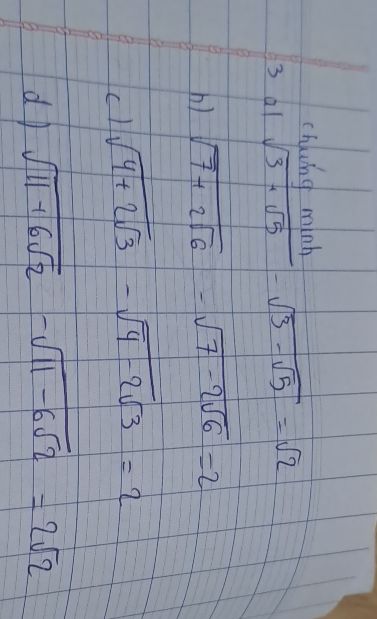 chứng minh
3 a) √(3 + √5) - √(3 - √5) = √2
b) √(7 + 2√6) - √(7 - 2√6) = 2
c) √(4 + 2√3) - √(4 - 2√3) = 2
d) √(11 + 6√2) - √(11 - 6√2) = 2√2